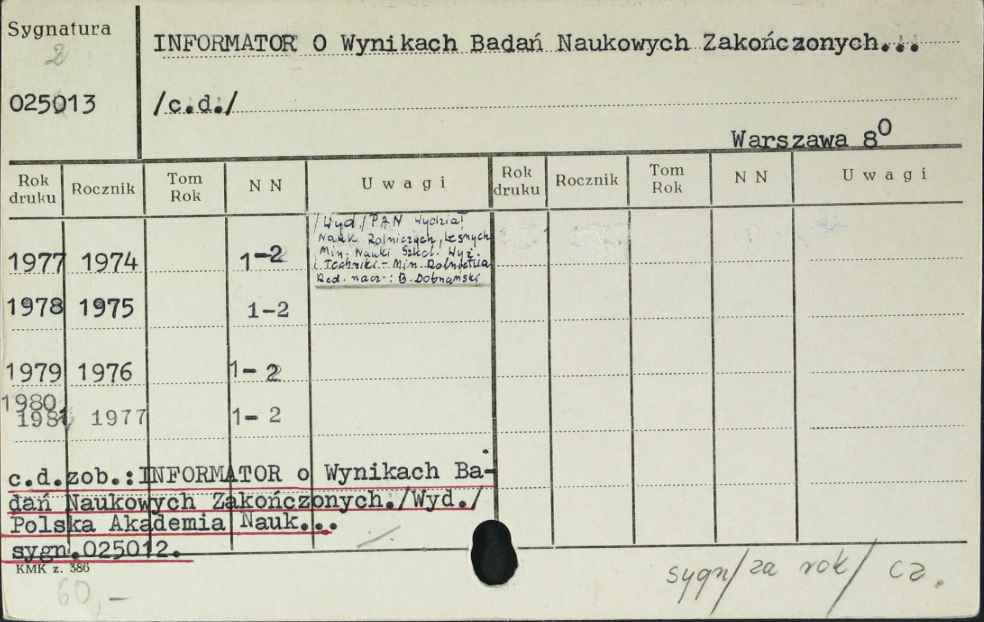 Sygnatura
2
025013
INFORMATOR O Wynikach Badań Naukowych Zakończonych...
/c.d./
Warszawa 8⁰
Rok druku Rocznik Tom Rok N N Uwagi Rok druku Rocznik Tom Rok N N Uwagi
/Wyd./ PAN Wydział
Nauk Rolniczych, Leśnych
Min. Nauki Szkol. Wyż.
i Techniki - Min. Rolnictwa
Red. nacz.: B. Dobrzański
1977 1974 1-2
1978 1975 1-2
1979 1976 1-2
1980
1981 1977 1-2
c.d.zob.:INFORMATOR o Wynikach Ba-
dań Naukowych Zakończonych./Wyd./
Polska Akademia Nauk...
sygn.025012.
KMK z. 386
60,-
sygn/za rok/ cz.